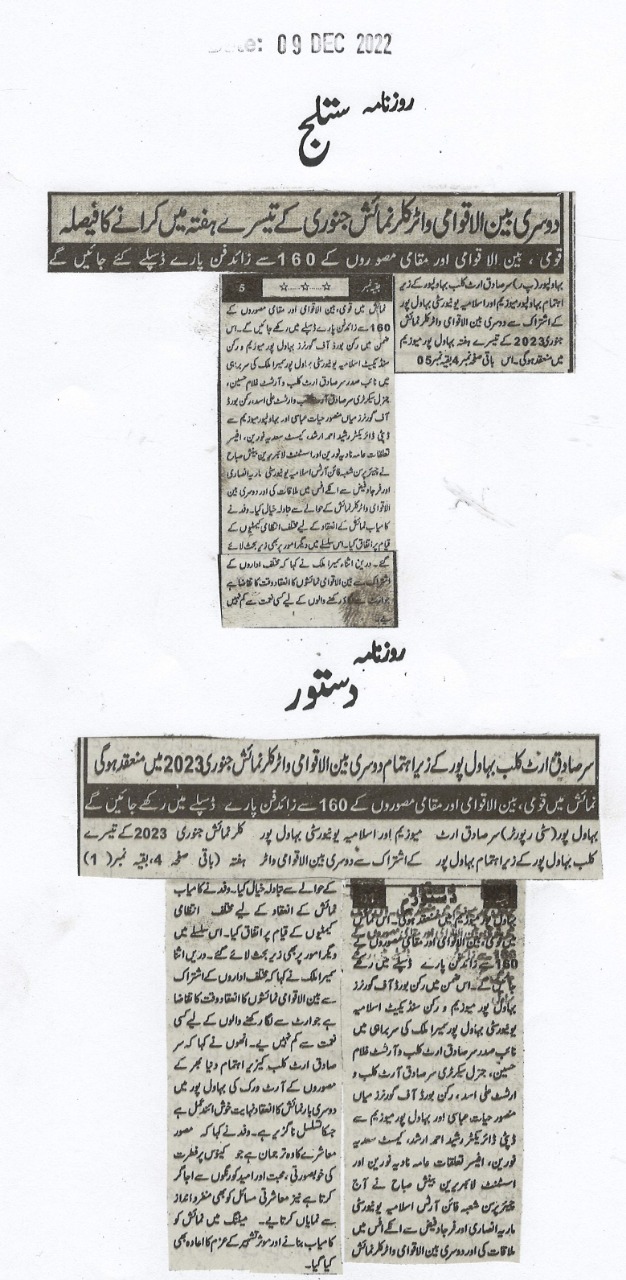 Date: 09 DEC 2022
روزنامہ ستلج
دوسری بین الاقوامی واٹر کلر نمائش جنوری کے تیسرے ہفتہ میں کرانے کا فیصلہ
قومی، بین الاقوامی اور مقامی مصوروں کے 160 سے زائد فن پارے ڈسپلے کئے جائیں گے
بہاولپور (پ ر) سر صادق ارٹ کلب بہاولپور کے زیر
اہتمام بہاولپور میوزیم اور اسلامیہ یونیورسٹی بہاول پور
کے اشتراک سے دوسری بین الاقوامی واٹر کلر نمائش
جنوری 2023 کے تیسرے ہفتہ بہاول پور میوزیم
میں منعقد ہوگی۔ اس باقی صفحہ نمبر 4 بقیہ نمبر 05
بقیہ نمبر 5
نمائش میں قومی، بین الاقوامی اور مقامی مصوروں کے
160 سے زائد فن پارے ڈسپلے میں رکھے جائیں گے۔ اس
ضمن میں رکن بورڈ آف گورنرز بہاول پور میوزیم و رکن
سنڈیکیٹ اسلامیہ یونیورسٹی بہاول پور سمیرا ملک کی سربراہی
میں نائب صدر سر صادق ارٹ کلب و آرٹسٹ غلام حسین،
جنرل سیکرٹری سر صادق آرٹ کلب و ارٹسٹ علی اسد، رکن بورڈ
آف گورنرز میاں منصور حیات عباسی اور بہاولپور میوزیم سے
ڈپٹی ڈائریکٹر رشید احمد ارشد، کیمسٹ سعدیہ نورین، افیسر
تعلقات عامہ نادیہ نورین اور اسسٹنٹ لائبریرین بینش صباح
نے چیئرپرسن شعبہ فائن آرٹس اسلامیہ یونیورسٹی ماریہ انصاری
اور فرجاد فیض سے انکے افس میں ملاقات کی اور دوسری بین
الاقوامی واٹر کلر نمائش کے حوالے سے تبادلہ خیال کیا۔ وفد نے
کامیاب نمائش کے انعقاد کے لیے مختلف انتظامی کمیٹیوں کے
قیام پر اتفاق کیا۔ اس سلسلے میں دیگر امور پر بھی زیر بحث لائے
گئے۔ دریں اثناء سمیرا ملک نے کہا کہ مختلف اداروں کے
اشتراک سے بین الاقوامی نمائشوں کا انعقاد وقت کا تقاضا ہے
جو ارٹ سے لگاؤ رکھنے والوں کے لیے کسی نعمت سے کم نہیں
ہے۔
روزنامہ دستور
سر صادق ارٹ کلب بہاول پور کے زیر اہتمام دوسری بین الاقوامی واٹر کلر نمائش جنوری 2023 میں منعقد ہوگی
نمائش میں قومی، بین الاقوامی اور مقامی مصوروں کے 160 سے زائد فن پارے ڈسپلے میں رکھے جائیں گے
بہاول پور (سٹی رپورٹر) سر صادق ارٹ
کلب بہاول پور کے زیر اہتمام بہاول پور
میوزیم اور اسلامیہ یونیورسٹی بہاول پور
کے اشتراک سے دوسری بین الاقوامی واٹر
کلر نمائش جنوری 2023 کے تیسرے
ہفتہ (باقی صفحہ 4، بقیہ نمبر 1)
بہاول پور میوزیم میں منعقد ہوگی۔ اس نمائش
میں قومی، بین الاقوامی اور مقامی مصوروں کے
160 سے زائد فن پارے ڈسپلے میں رکھے
جائیں گے۔ اس ضمن میں رکن بورڈ آف گورنرز
بہاول پور میوزیم و رکن سنڈیکیٹ اسلامیہ
یونیورسٹی بہاول پور سمیرا ملک کی سربراہی میں
نائب صدر سر صادق ارٹ کلب و آرٹسٹ غلام
حسین، جنرل سیکرٹری سر صادق آرٹ کلب و
ارٹسٹ علی اسد، رکن بورڈ آف گورنرز میاں
منصور حیات عباسی اور بہاول پور میوزیم سے
ڈپٹی ڈائریکٹر رشید احمد ارشد، کیمسٹ سعدیہ
نورین، افیسر تعلقات عامہ نادیہ نورین اور
اسسٹنٹ لائبریرین بینش صباح نے آج
چیئرپرسن شعبہ فائن آرٹس اسلامیہ یونیورسٹی
ماریہ انصاری اور فرجاد فیض سے انکے افس میں
ملاقات کی اور دوسری بین الاقوامی واٹر کلر نمائش
کے حوالے سے تبادلہ خیال کیا۔ وفد نے کامیاب
نمائش کے انعقاد کے لیے مختلف انتظامی
کمیٹیوں کے قیام پر اتفاق کیا۔ اس سلسلے میں
دیگر امور پر بھی زیر بحث لائے گئے۔ دریں اثنا
سمیرا ملک نے کہا کہ مختلف اداروں کے اشتراک
سے بین الاقوامی نمائشوں کا انعقاد وقت کا تقاضا
ہے جو ارٹ سے لگا رکھنے والوں کے لیے کسی
نعمت سے کم نہیں ہے۔ انھوں نے کہا کہ سر
صادق ارٹ کلب کیزیر اہتمام دنیا بھر کے
مصوروں کے آرٹ ورک کی بہاول پور میں
دوسری بار نمائش کا انعقاد نہایت خوش ائند عمل ہے
جسکا تسلسل ناگزیر ہے۔ وفد نے کہا کہ مصور
معاشرے کا وہ ترجمان ہے جو کینوس پر فطرت
کی خوبصورتی، محبت اور امید کو رنگوں سے اجاگر
کرتا ہے نیز معاشرتی مسائل کو بھی منفرد انداز
سے نمایاں کرتا ہے۔ میٹنگ میں نمائش کو
کامیاب بنانے اور موثر تشہیر کے عزم کا اعادہ بھی
کیا گیا۔